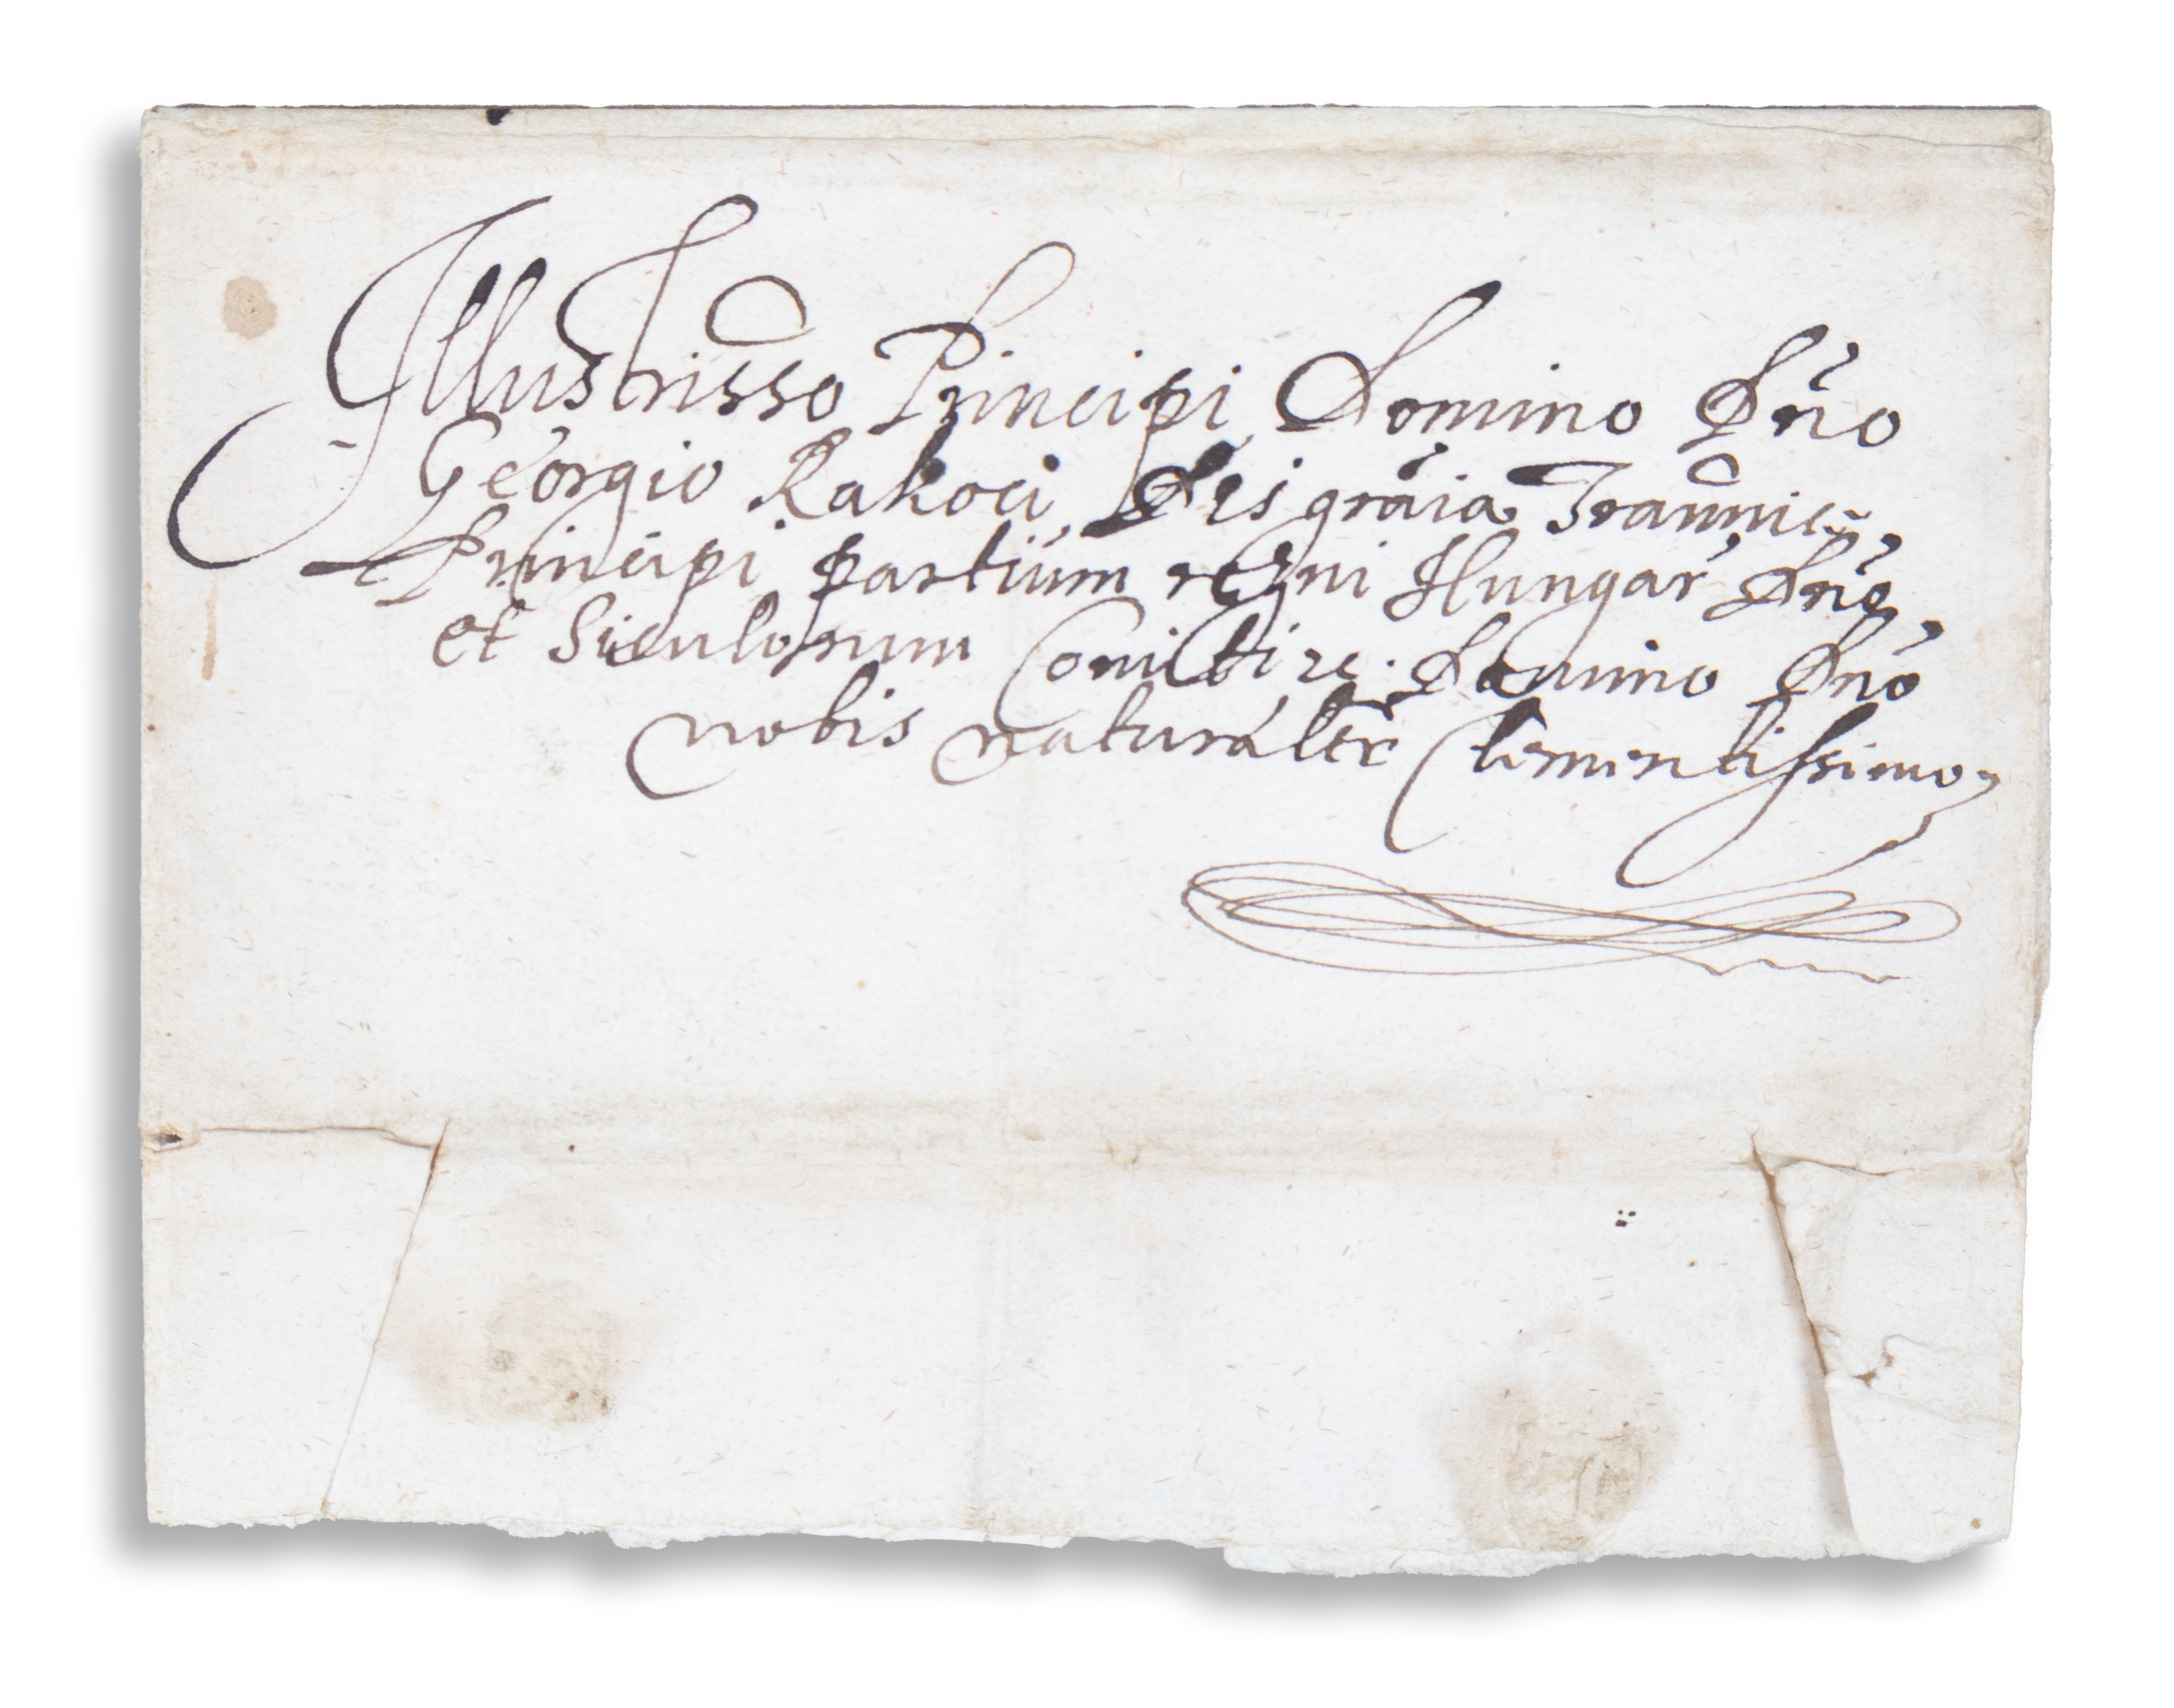 Illustrisso Principi Domino Dño
Georgio Rakoci Dei gratia Trannie,
Principi partium regni Hungar Dño,
et Siculorum Comiti &c. Domino Dño
nobis naturaler Clementissimo